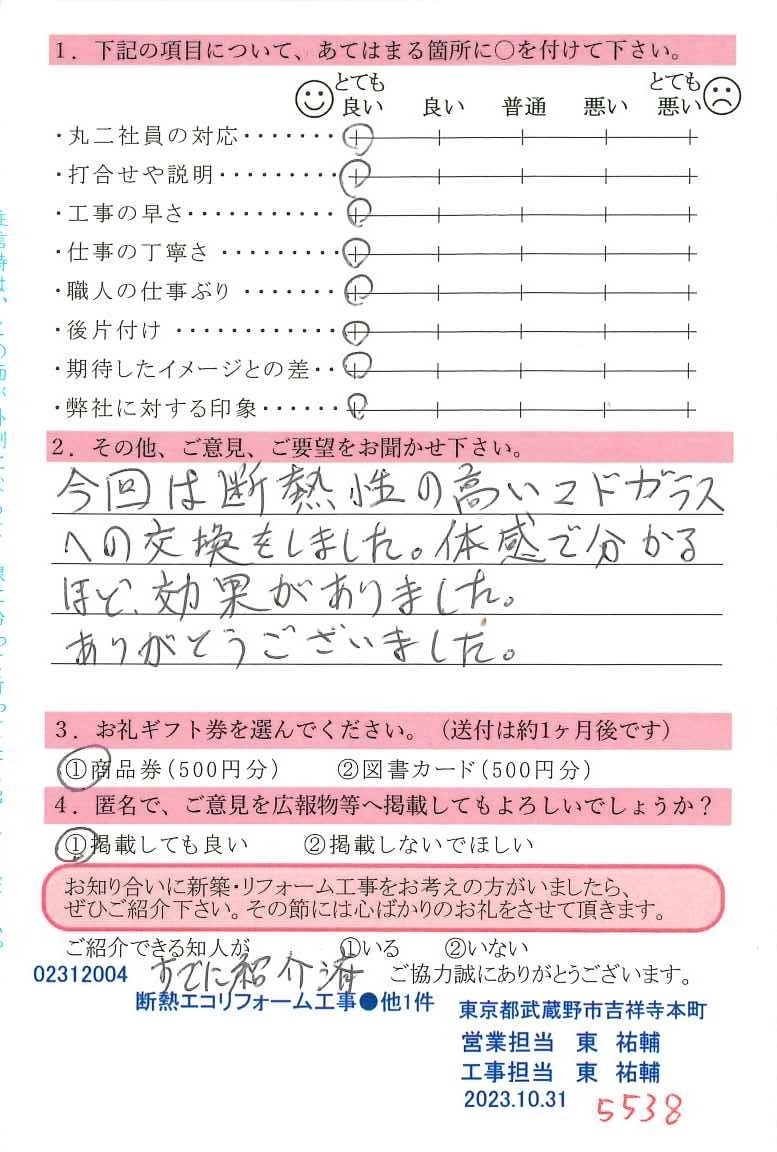 1. 下記の項目について、あてはまる箇所に○を付けて下さい。
とても良い 良い 普通 悪い とても悪い
・丸二社員の対応・・・・・・・
・打合せや説明・・・・・・・・・
・工事の早さ・・・・・・・・・・・
・仕事の丁寧さ ・・・・・・・・・
・職人の仕事ぶり ・・・・・・・
・後片付け ・・・・・・・・・・・・
・期待したイメージとの差・・
・弊社に対する印象・・・・・・
2. その他、ご意見、ご要望をお聞かせ下さい。
今回は断熱性の高いマドガラス
への交換をしました。体感で分かる
ほど、効果がありました。
ありがとうございました。
3. お礼ギフト券を選んでください。(送付は約1ヶ月後です)
①商品券(500円分) ②図書カード(500円分)
4. 匿名で、ご意見を広報物等へ掲載してもよろしいでしょうか?
①掲載しても良い ②掲載しないでほしい
お知り合いに新築・リフォーム工事をお考えの方がいましたら、
ぜひご紹介下さい。その節には心ばかりのお礼をさせて頂きます。
ご紹介できる知人が ①いる ②いない
02312004 すでに紹介済 ご協力誠にありがとうございます。
断熱エコリフォーム工事●他1件 東京都武蔵野市吉祥寺本町
営業担当 東 祐輔
工事担当 東 祐輔
2023.10.31 5538